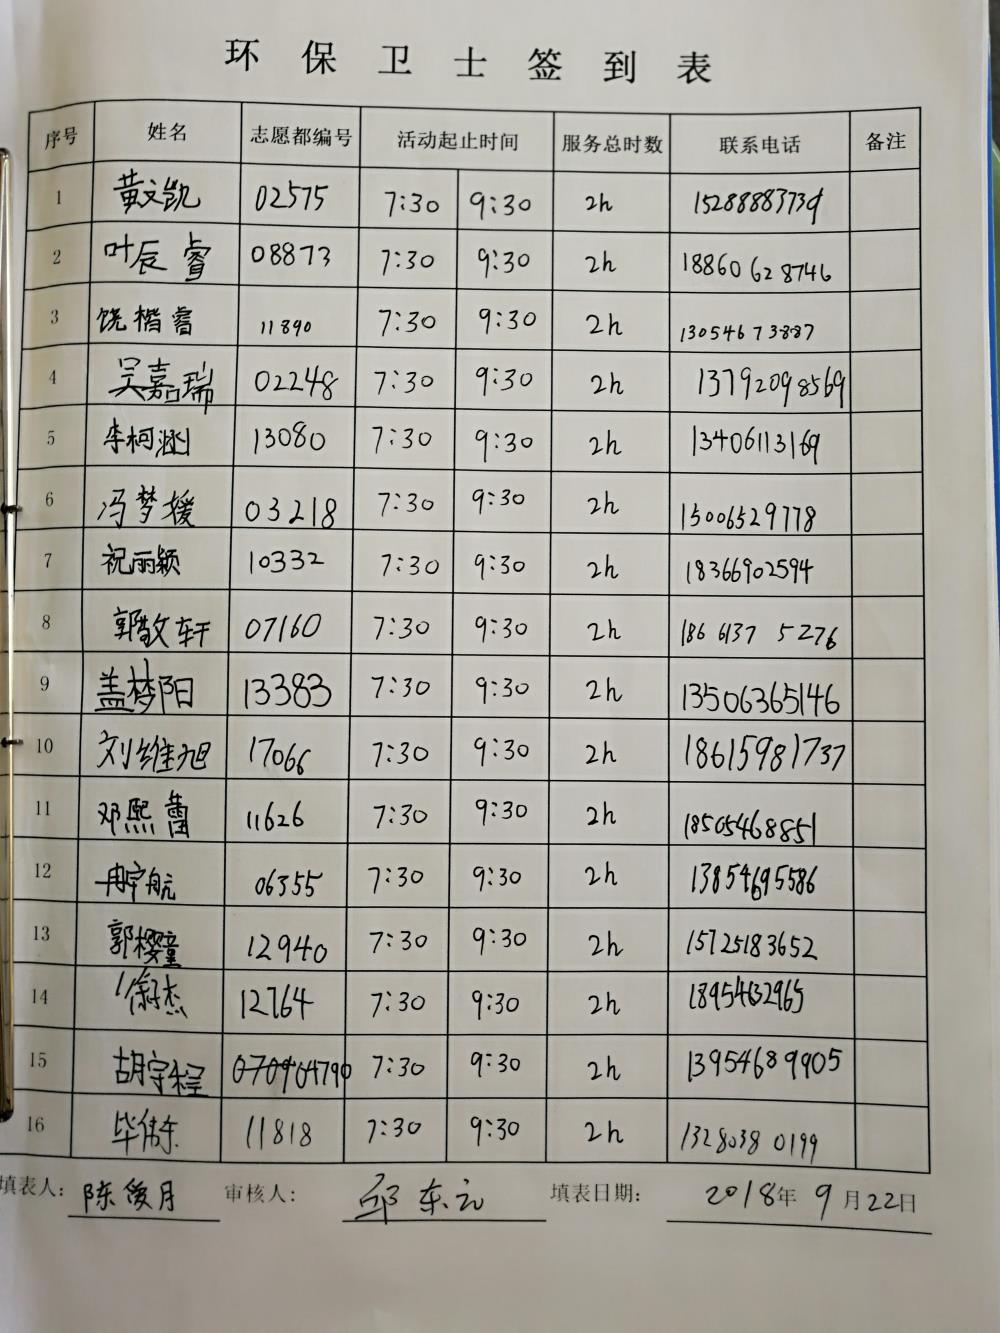 环保卫士签到表
序号 姓名 志愿都编号 活动起止时间 服务总时数 联系电话 备注
1 黄文凯 02575 7:30 9:30 2h 15288883739
2 叶辰睿 08873 7:30 9:30 2h 18860628746
3 饶楷睿 11890 7:30 9:30 2h 13054673887
4 吴嘉瑞 02248 7:30 9:30 2h 13792098569
5 李柯涵 13080 7:30 9:30 2h 13406113169
6 冯梦媛 03218 7:30 9:30 2h 15006529778
7 祝丽颖 10332 7:30 9:30 2h 18366902594
8 郭敬轩 07160 7:30 9:30 2h 186 6137 5276
9 盖梦阳 13383 7:30 9:30 2h 13506365146
10 刘维旭 17066 7:30 9:30 2h 18615981737
11 邓熙蕾 11626 7:30 9:30 2h 18505468851
12 冉宇航 06355 7:30 9:30 2h 13854695586
13 郭樱童 12940 7:30 9:30 2h 15725183652
14 12764 7:30 9:30 2h
15 胡宇程 04790 7:30 9:30 2h 13954689905
16 毕伟东 11818 7:30 9:30 2h 1328038 0199
填表人: 陈俊月 审核人: 邱东元 填表日期: 2018年9月22日